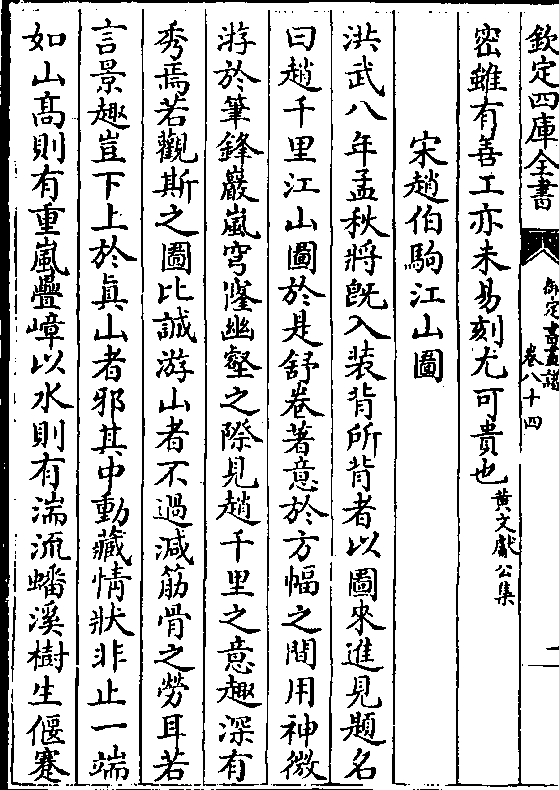 欽定四庫全書
御定書畫譜
卷八十四
一
密雖有善工亦未易刻尤可貴也黄文獻公集
宋趙伯駒江山圖
洪武八年孟秋將旣入装背所背者以圖來進見題名
曰趙千里江山圖於是舒卷著意於方幅之間用神微
游於筆鋒巖嵐穹窿幽壑之際見趙千里之意趣深有
秀焉若觀斯之圖比誠游山者不過減筋骨之勞耳若
言景趣豈下上於真山者邪其中動藏情狀非止一端
如山髙則有重嵐疊嶂以水則有湍流蟠溪樹生偃蹇